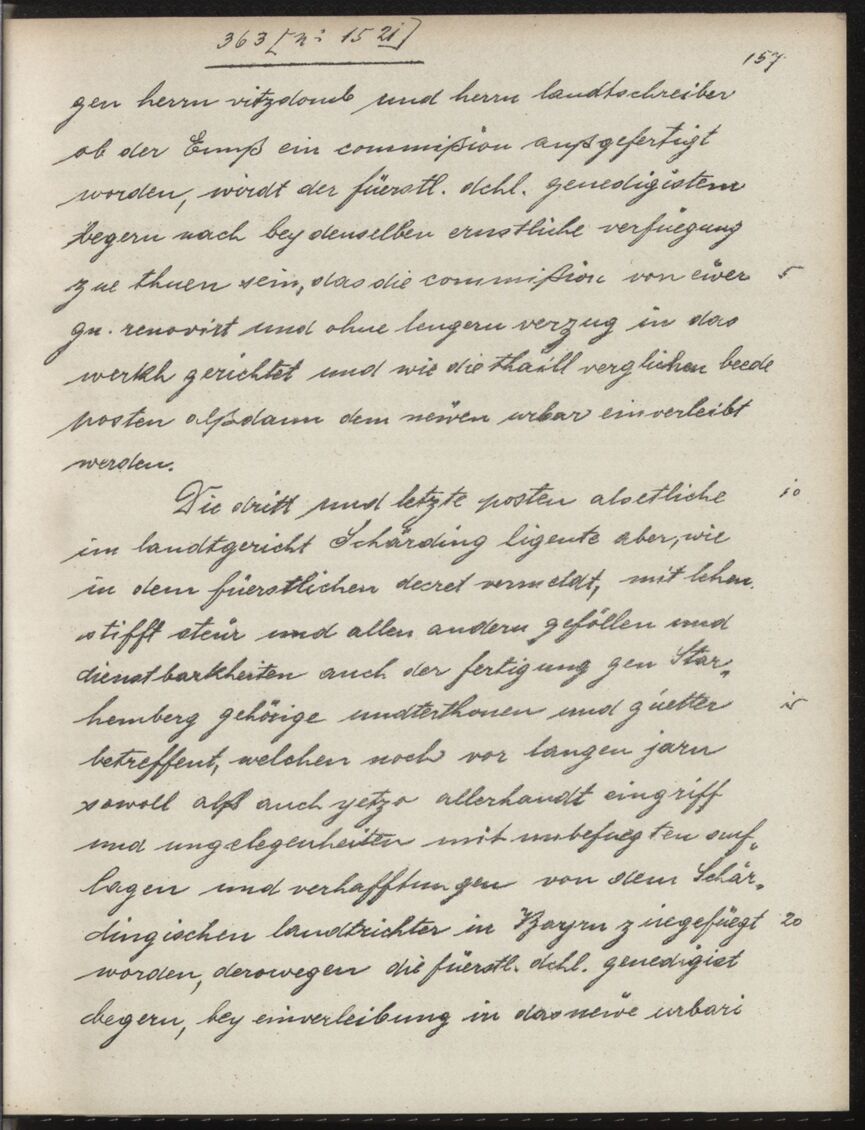 363 [n: 15 21]
157.
gen herrn vitzdomb und herrn landtschreiber
ob der Ennß ein commißion außgefertigt
worden, wirdt der füerstl. dchl. genedigistem
begern nach bey denselben ernstliche verfüegung
zue thuen sein, das die commißion von eüer 5
gn. renovirt und ohne lengern verzug in das
werkh gerichtet und wie die thaill verglichen beede
posten alßdann dem newen urbar einverleibt
werden.
Die dritt und letzte posten als etliche 10
im landtgericht Schärding ligente aber, wie
in dem füerstlichen decret vermeldt, mit lehen.
stifft steür und allen andern geföllen und
dienstbarkheiten auch der fertigung gen Star„
hemberg gehörige undterthonen und güetter 15
betreffent, welchen noch vor langen jarn
sowoll alß auch yetzo allerhandt eingriff
und ungelegenheiten mit unbefuegten auf„
lagen und verhafftungen von dem Schär„
dingischen landtrichter in Bayrn zuegefüegt 20
worden, derowegen die füerstl. dchl. genedigist
begern, bey einverleibung in das neüe urbari